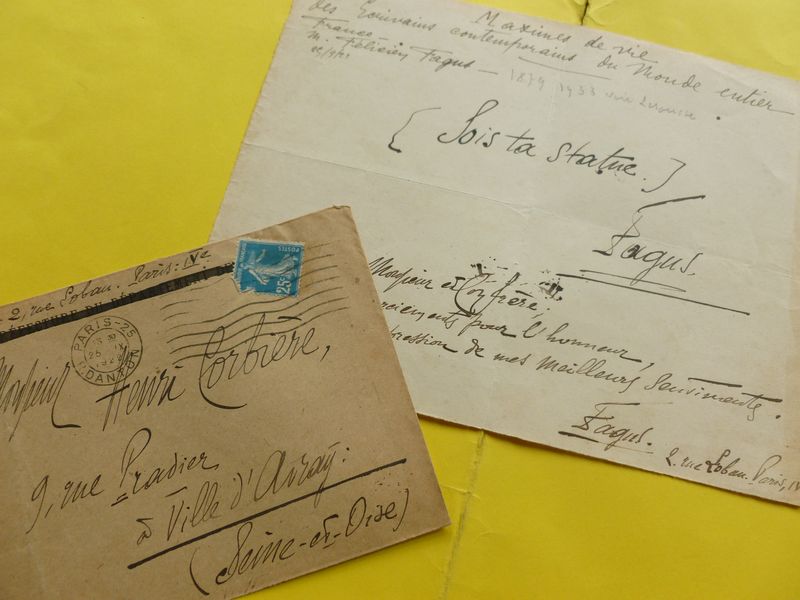 Maximes de vie
des Ecrivains contemporains du Monde entier.
France
M. Félicien Fagus —
1879 1933
[Sois ta statue.]
Fagus.
Monsieur et Confrère,
pour l'honneur,
de mes meilleurs sentiments.
Fagus.
2, rue Lobau. Paris, IV
2, rue Lobau. Paris: IVe
POSTES
25c
PARIS-25
25 IX
R. DANTON
Monsieur Henri Corbière,
9, rue Pradier
à Ville d'Avray:
(Seine-et-Oise)